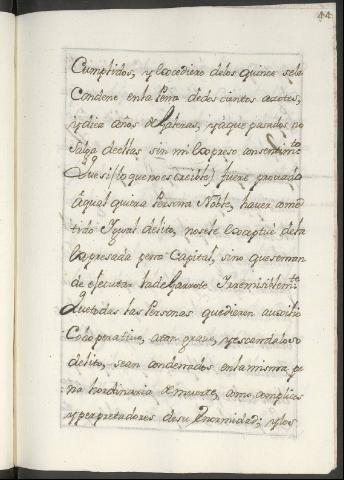 44
Cumplidos, y excediere delos quince sele
Condene enla Pena dedos cientos azotes,
y diez años de Galeras, y â que pasados no
Salga deellas sin mi expreso consentim.to
Que si (lo que no es creible) fuere provado
â qual quiera Persona Noble, haver come
tido Igual delito, nosele exceptue dela
expresada pena Capital, sino que se man
de ejecutar la de Garrote Irremisiblem.te
Que todas las Personas que dieren auxilio
Cooperativo, a tan grave, y escandaloso
delito, sean condenados enla misma pe
na hordinaria de muerte, como complices
y perpetradores de su Enormidad; y los